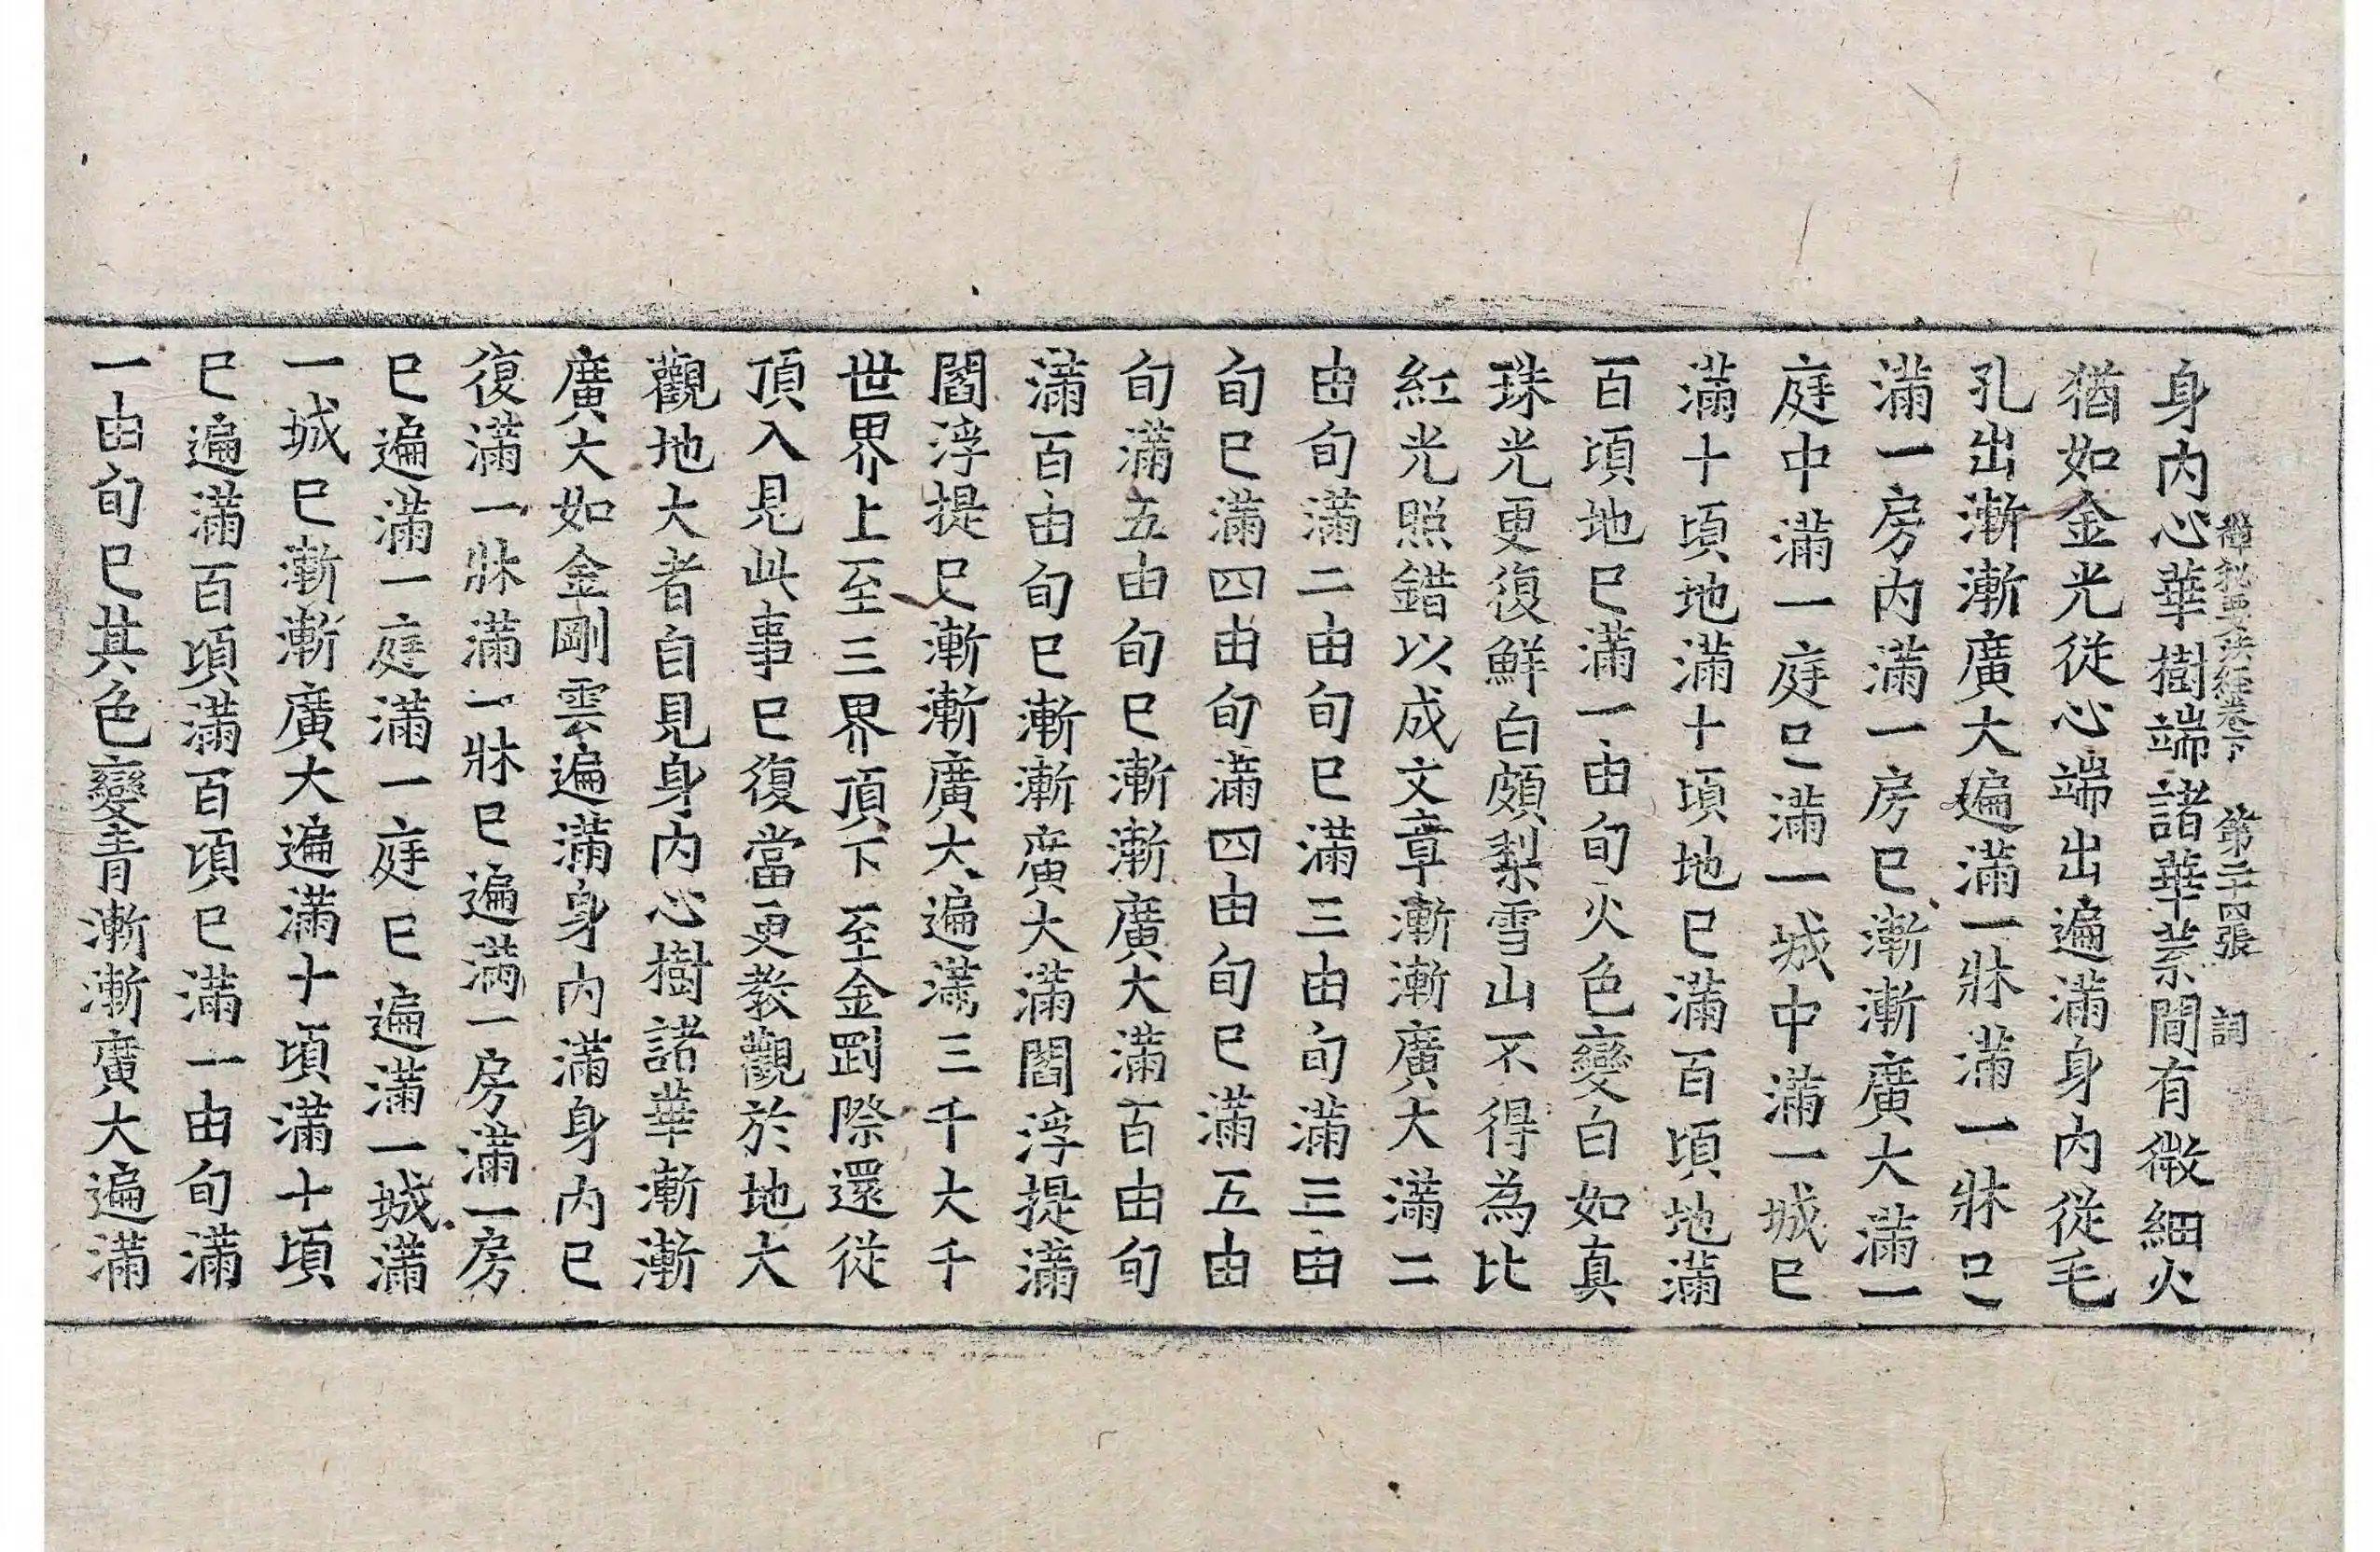 禪秘要法經卷下 第二十四張 詞
身内心華樹端諸華葉間有微細火
猶如金光從心端出遍滿身内從毛
孔出漸漸廣大遍滿一牀滿一牀巳
滿一房内滿一房巳漸漸廣大滿一
庭中滿一庭巳滿一城中滿一城巳
滿十頃地滿十頃地巳滿百頃地滿
百頃地巳滿一由旬火色變白如真
珠光更復鮮白頗梨雪山不得為比
紅光照錯以成文章漸漸廣大滿二
由旬滿二由旬巳滿三由旬滿三由
旬巳滿四由旬滿四由旬巳滿五由
旬滿五由旬巳漸漸廣大滿百由旬
滿百由旬巳漸漸廣大滿閻浮提滿
閻浮提巳漸漸廣大遍滿三千大千
世界上至三界頂下至金剛際還從
頂入見此事巳復當更教觀於地大
觀地大者自見身内心樹諸華漸漸
廣大如金剛雲遍滿身内滿身内巳
復滿一牀滿一牀巳遍滿一房滿一房
巳遍滿一庭滿一庭巳遍滿一城滿
一城巳漸漸廣大遍滿十頃滿十頃
巳遍滿百頃滿百頃巳滿一由旬滿
一由旬巳其色變青漸漸廣大遍滿